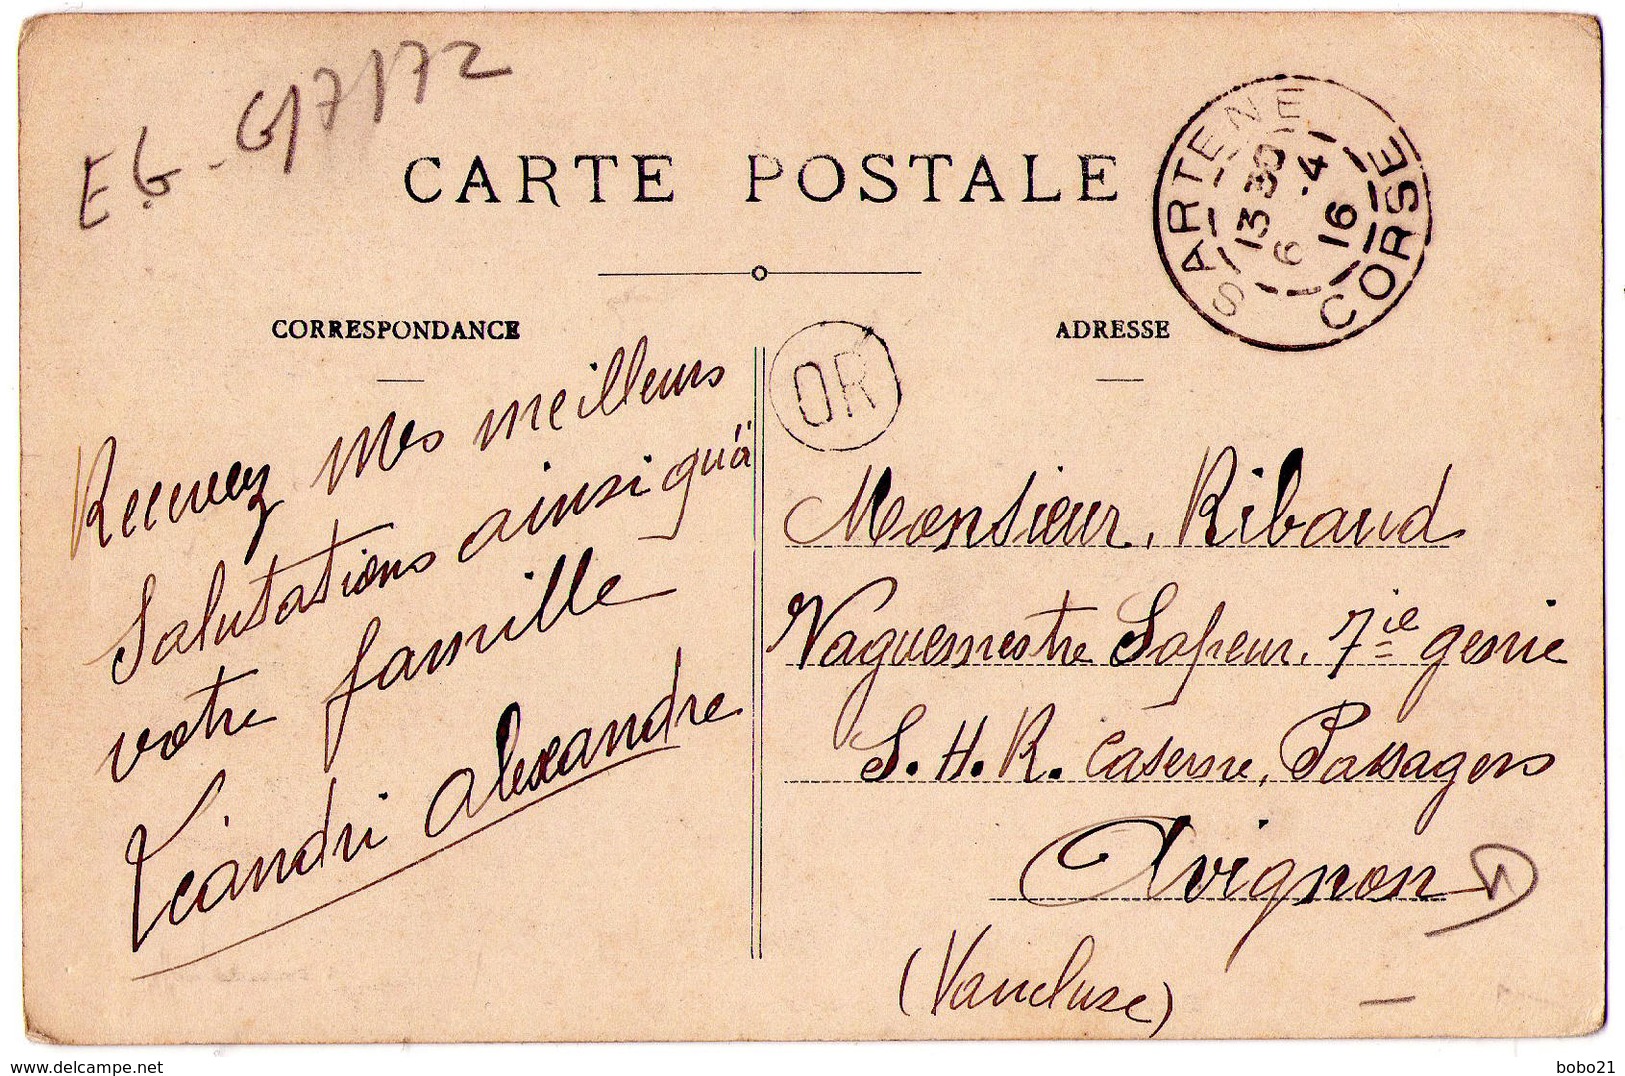 E.G - G/7/72
CARTE POSTALE
SARTENE
13 30
6 -4
16
CORSE
CORRESPONDANCE
ADRESSE
OR
Recevez mes meilleurs
Salutations ainsi qu'à
votre famille
Léandri Alexandre
Monsieur, Ribaud
Vaguemestre Sapeur, 7ie genie
S.H.R. Caserne, Passagers
Avignon
(Vaucluse)
bobo21